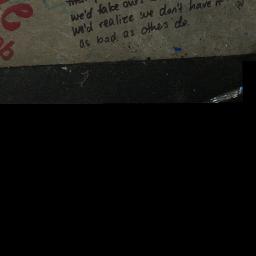 we'd take our
we'd realize we don't have it
as bad as others do.